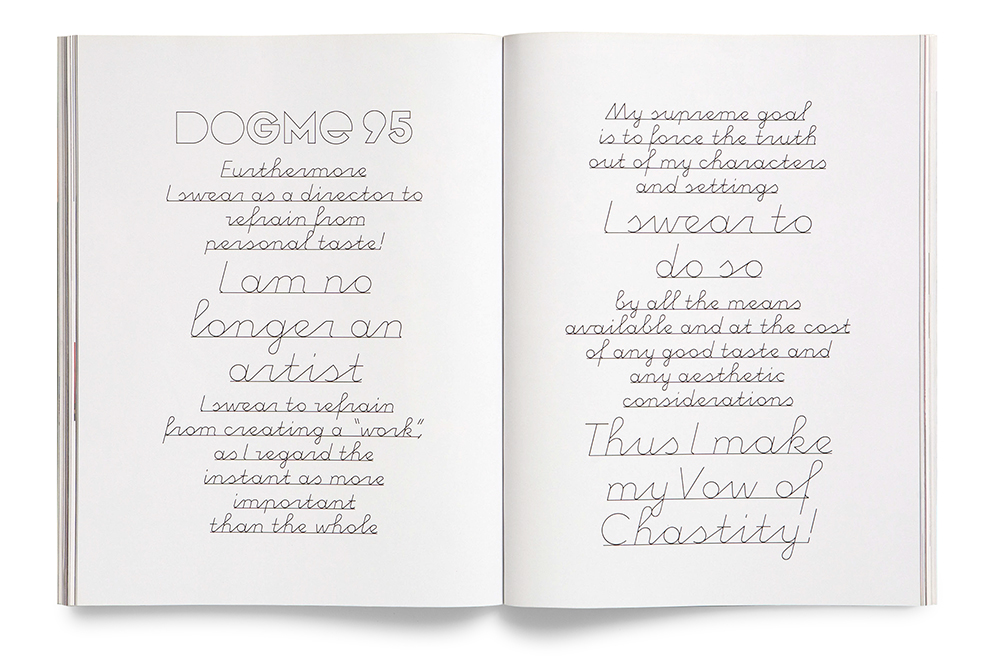 DOGMe 95
Furthermore
I swear as a director to
refrain from
personal taste!
I am no
longer an
artist
I swear to refrain
from creating a "work",
as I regard the
instant as more
important
than the whole
My supreme goal
is to force the truth
out of my characters
and settings
I swear to
do so
by all the means
available and at the cost
of any good taste and
any aesthetic
considerations
Thus I make
my Vow of
Chastity!